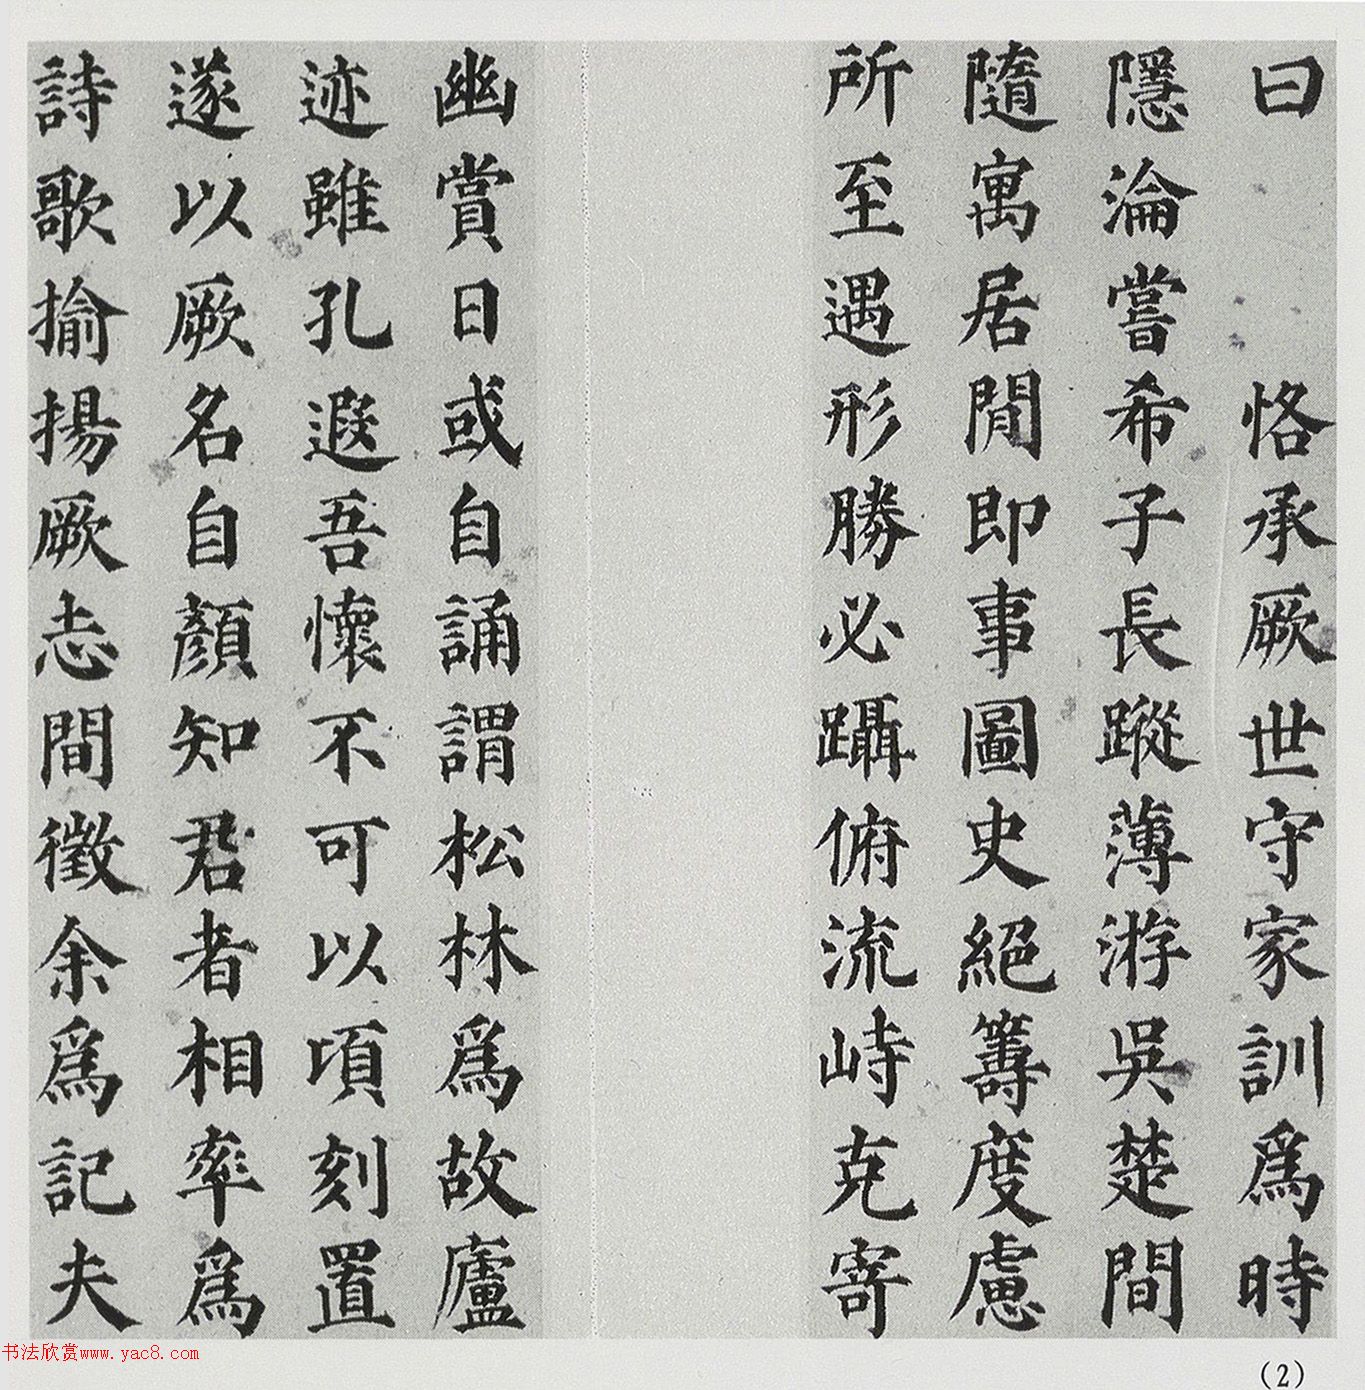 曰 恪承厥世守家訓爲時
隱淪嘗希子長蹤薄游吳楚間
隨寓居閒即事圖史絕籌度慮
所至遇形勝必躡俯流峙克寄
幽賞日或自誦謂松林爲故廬
迹雖孔遐吾懷不可以頃刻置
遂以厥名自顏知君者相率爲
詩歌揄揚厥志間徵余爲記夫
书法欣赏www.yac8.com
(2)